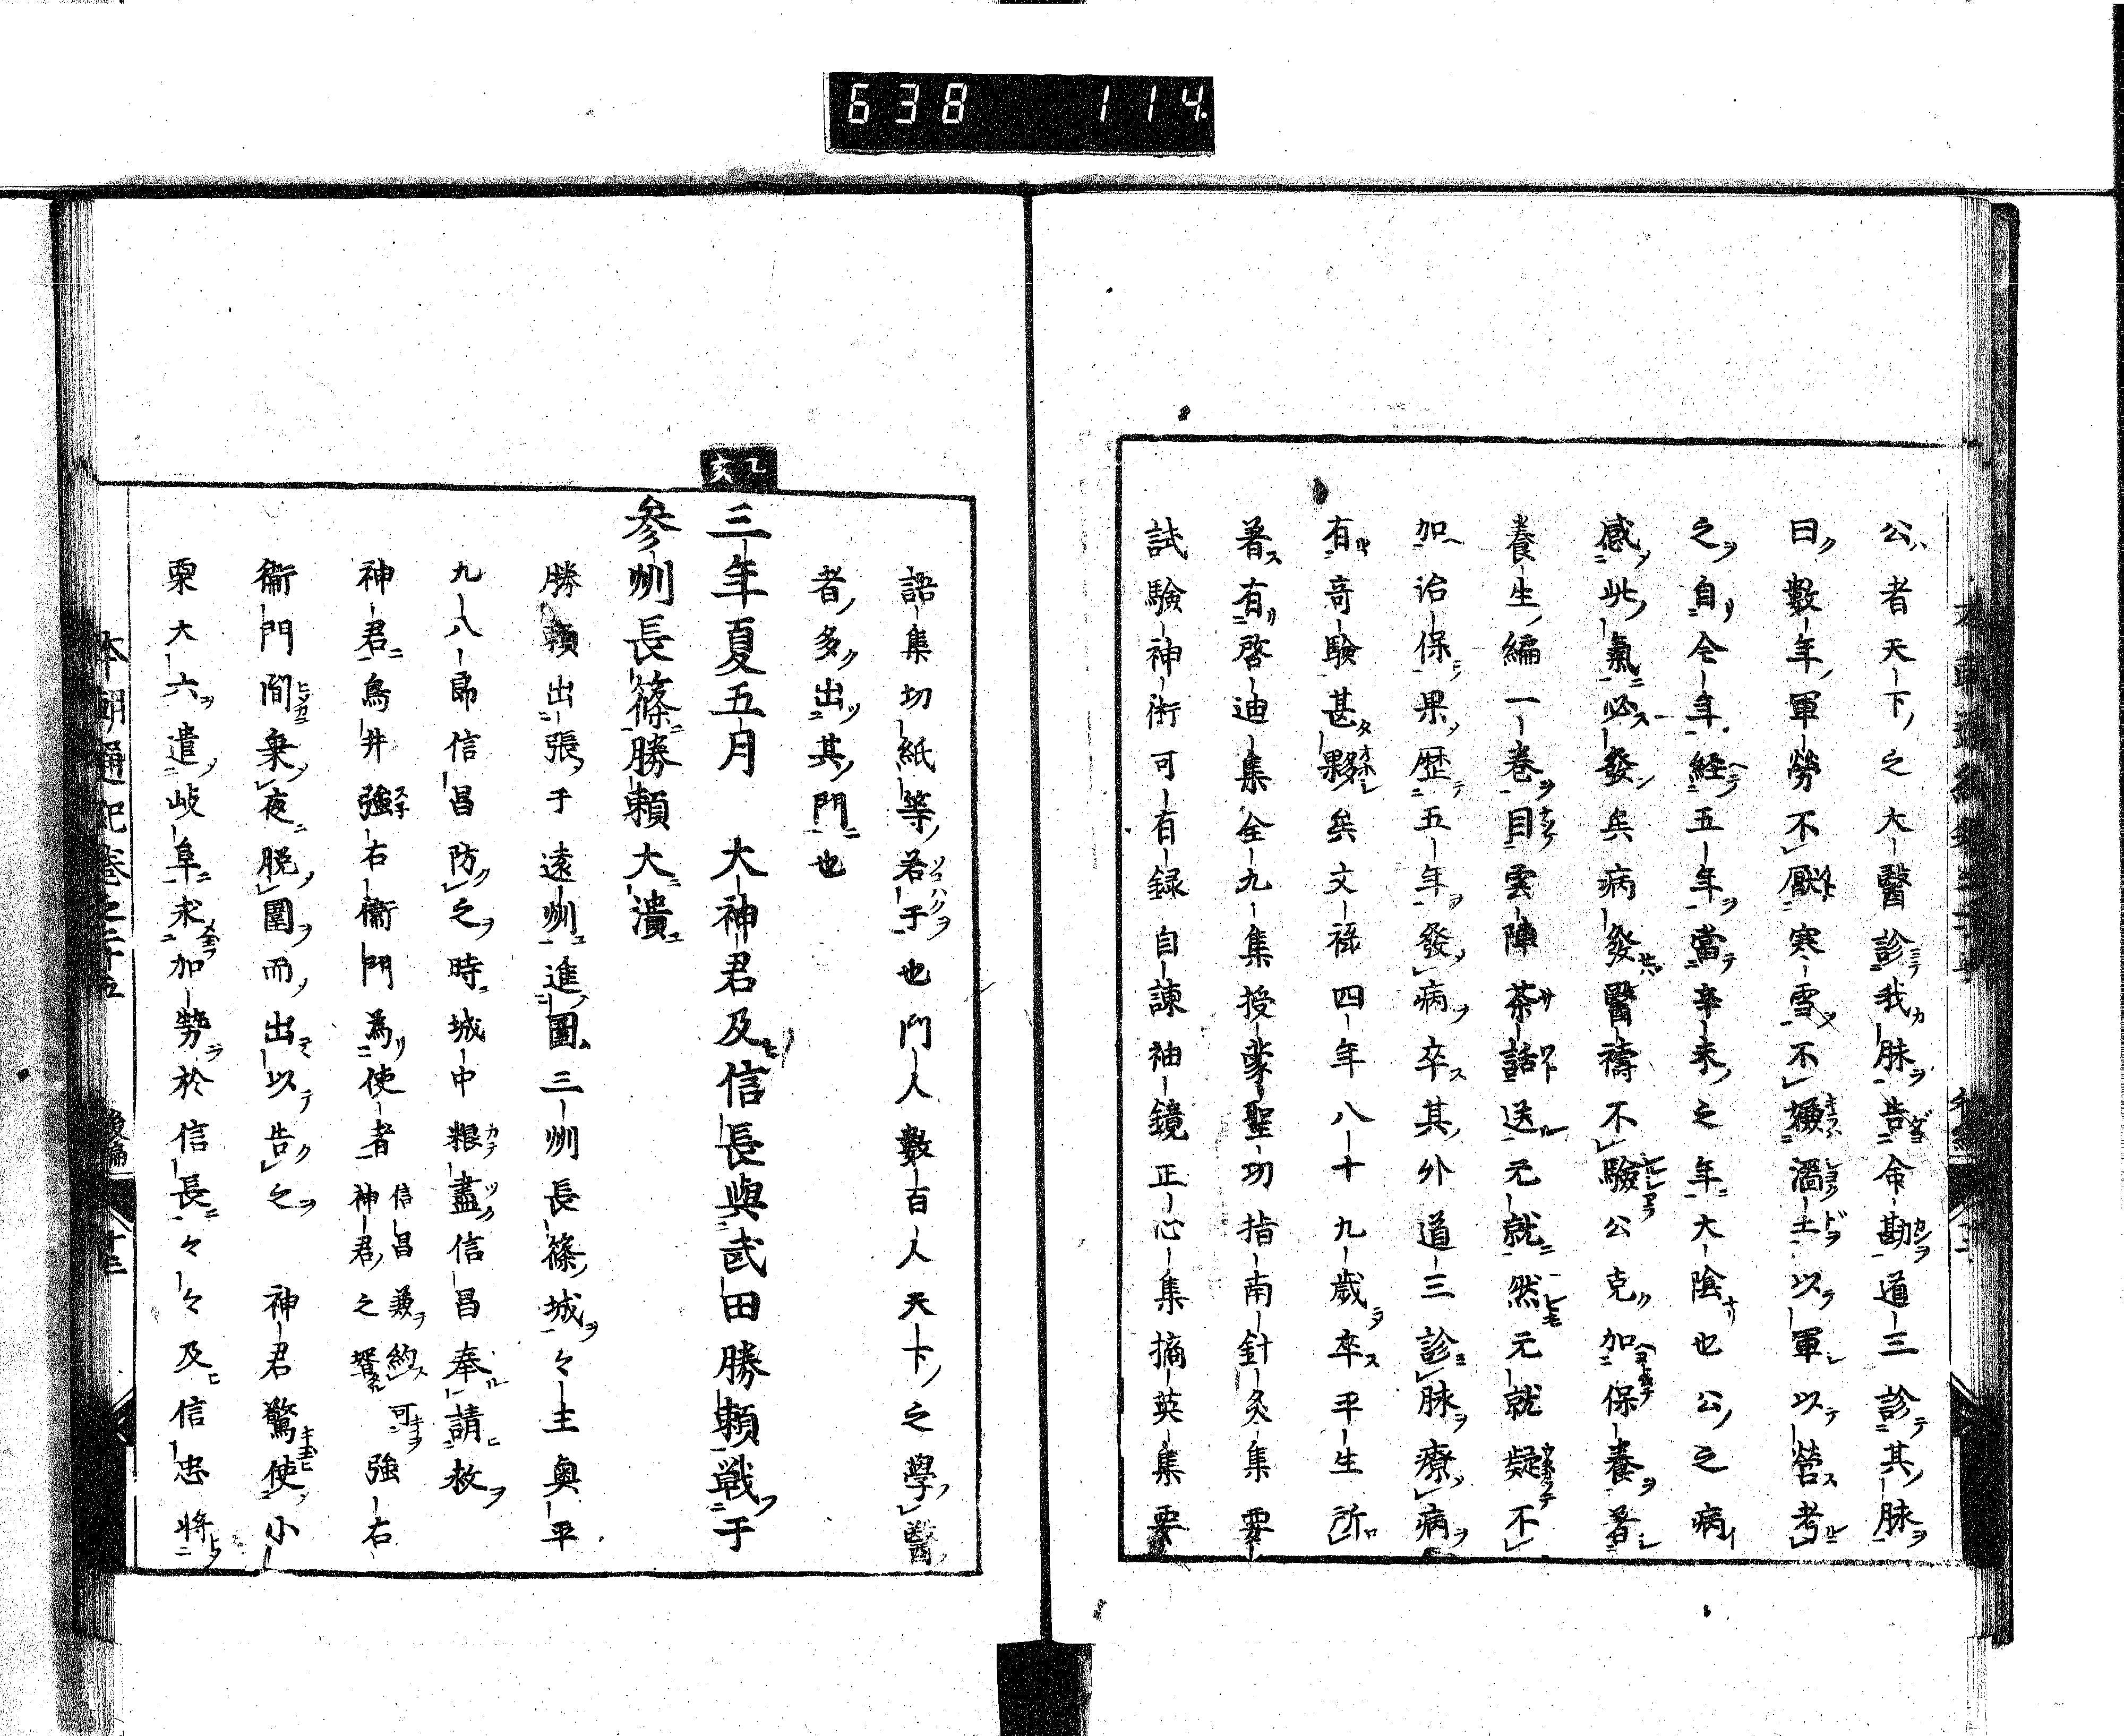 638 114
公者天下之大醫診我脉告命勘道三診其脉
曰數年軍勞不厭寒雪不嫌濕土以軍以營考
之自今年経五年當卒来之年大陰也公之病
感此氣必發矣病發醫禱不驗公克加保養著
養生編一巻目雲陣茶話送元就然元就疑不
加治保果歴五年發病卒其外道三診脉療病
有奇驗甚夥矣文祿四年八十九歳卒平生所
著有啓迪集全九集授蒙聖功指南針灸集要
試驗神術可有録自諌袖鏡正心集摘英集要
語集切紙等若于也門人數百人天下之學醫
者多出其門也
乙亥
三年夏五月 大神君及信長與武田勝頼戦于
参州長篠勝頼大潰
勝頼出張于遠州進圍三州長篠城々主奥平
九八郎信昌防之時城中粮盡信昌奉請救
神君鳥井強右衞門為使者信昌兼約可神君之婿強右
衞門間乗夜脱圍而出以告之 神君驚使小
栗大六遣岐阜求加勢於信長々々及信忠将
本朝通紀巻之二十五 後編 十三